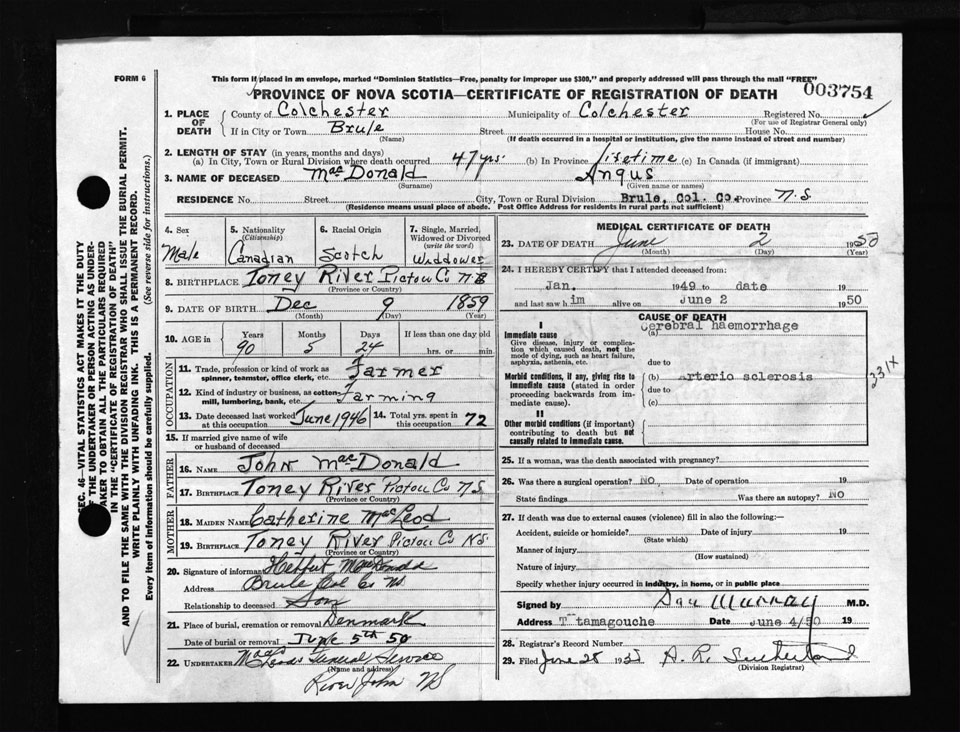 FORM 6
This form if placed in an envelope, marked "Dominion Statistics—Free, penalty for improper use $300," and properly addressed will pass through the mail "FREE"
PROVINCE OF NOVA SCOTIA—CERTIFICATE OF REGISTRATION OF DEATH
003754
1. PLACE OF DEATH
County of Colchester Municipality of Colchester Registered No.
(For use of Registrar General only)
If in City or Town Brule Street House No.
(Name) (If death occurred in a hospital or institution, give the name instead of street and number)
2. LENGTH OF STAY (in years, months and days)
(a) In City, Town or Rural Division where death occurred 47 yrs. (b) In Province lifetime (c) In Canada (if immigrant)
3. NAME OF DECEASED MacDonald Angus
(Surname) (Given name or names)
RESIDENCE No. Street City, Town or Rural Division Brule, Col. Co. Province N.S.
(Residence means usual place of abode. Post Office Address for residents in rural parts not sufficient)
4. Sex Male
5. Nationality (Citizenship) Canadian
6. Racial Origin Scotch
7. Single, Married, Widowed or Divorced (write the word) Widdower
8. BIRTHPLACE Toney River Pictou Co N.S
(Province or Country)
9. DATE OF BIRTH Dec 9 1859
(Month) (Day) (Year)
10. AGE in Years Months Days If less than one day old
90 5 24 hrs. or min.
OCCUPATION
11. Trade, profession or kind of work as spinner, teamster, office clerk, etc. Farmer
12. Kind of industry or business, as cotton-mill, lumbering, bank, etc. Farming
13. Date deceased last worked at this occupation June 1946
14. Total yrs. spent in this occupation 72
15. If married give name of wife or husband of deceased
FATHER
16. NAME John MacDonald
17. BIRTHPLACE Toney River Pictou Co N.S
(Province or Country)
MOTHER
18. MAIDEN NAME Catherine MacLeod
19. BIRTHPLACE Toney River Pictou Co NS
(Province or Country)
20. Signature of informant
Address Brule Col Co Ns.
Relationship to deceased Son
21. Place of burial, cremation or removal Denmark
Date of burial or removal June 5th 50
22. UNDERTAKER MacLeods Funeral Service
(Name and address)
River John NS
MEDICAL CERTIFICATE OF DEATH
23. DATE OF DEATH June 2 1950
(Month) (Day) (Year)
24. I HEREBY CERTIFY that I attended deceased from:
Jan. 1949 to date 19
and last saw him alive on June 2 1950
CAUSE OF DEATH
I
Immediate cause
Give disease, injury or complication which caused death, not the mode of dying, such as heart failure, asphyxia, asthenia, etc.
(a) Cerebral haemorrhage
due to
Morbid conditions, if any, giving rise to immediate cause (stated in order proceeding backwards from immediate cause).
(b) arterio sclerosis
due to
(c)
331X
II
Other morbid conditions (if important) contributing to death but not causally related to immediate cause.
25. If a woman, was the death associated with pregnancy?
26. Was there a surgical operation? NO. Date of operation 19
State findings Was there an autopsy? NO
27. If death was due to external causes (violence) fill in also the following:—
Accident, suicide or homicide? Date of injury 19
(State which)
Manner of injury
(How sustained)
Nature of injury
Specify whether injury occurred in industry, in home, or in public place
Signed by Dan Murray M.D.
Address T tamagouche Date June 4/50 19
28. Registrar's Record Number
29. Filed June 28 19 A. R. Sutherland
(Division Registrar)
SEC. 46—VITAL STATISTICS ACT MAKES IT THE DUTY OF THE UNDERTAKER OR PERSON ACTING AS UNDERTAKER TO OBTAIN ALL THE PARTICULARS REQUIRED IN THE "CERTIFICATE OF REGISTRATION OF DEATH"
AND TO FILE THE SAME WITH THE DIVISION REGISTRAR WHO SHALL ISSUE THE BURIAL PERMIT.
WRITE PLAINLY WITH UNFADING INK. THIS IS A PERMANENT RECORD.
Every item of information should be carefully supplied. (See reverse side for instructions.)